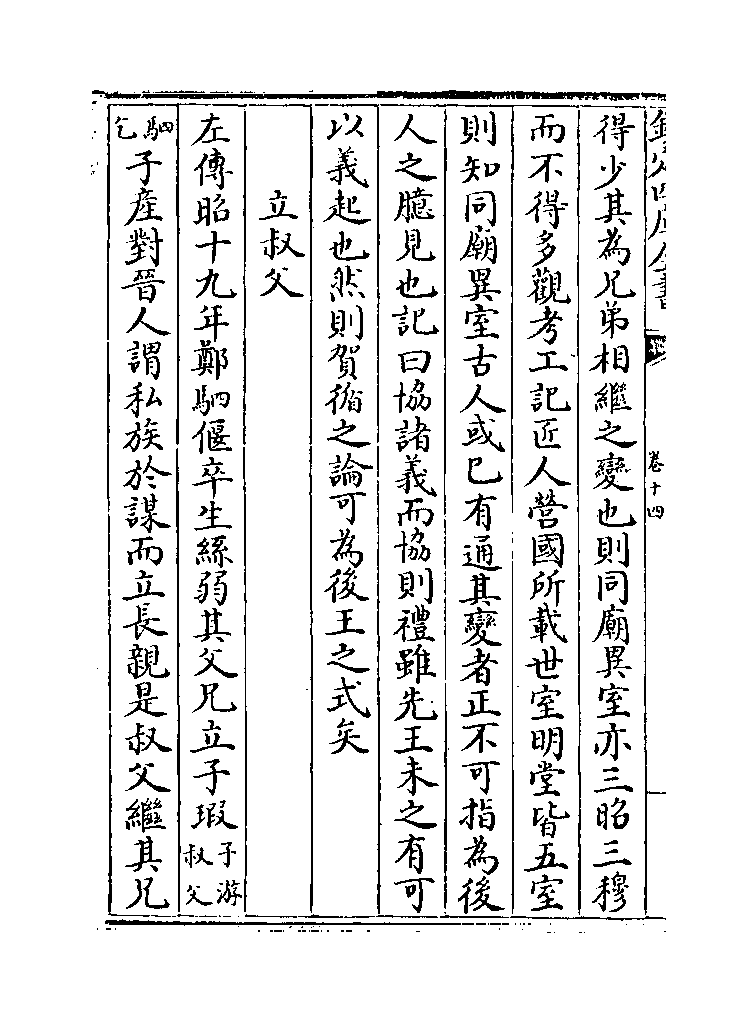 欽定四庫全書
卷十四
得少其為兄弟相繼之變也則同廟異室亦三昭三穆
而不得多觀考工記匠人營國所載世室明堂皆五室
則知同廟異室古人或已有通其變者正不可指為後
人之臆見也記曰協諸義而協則禮雖先王未之有可
以義起也然則賀循之論可為後王之式矣
立叔父
左傳昭十九年鄭駟偃卒生絲弱其父兄立子瑕子游叔父
駟乞子產對晉人謂私族於謀而立長親是叔父繼其兄